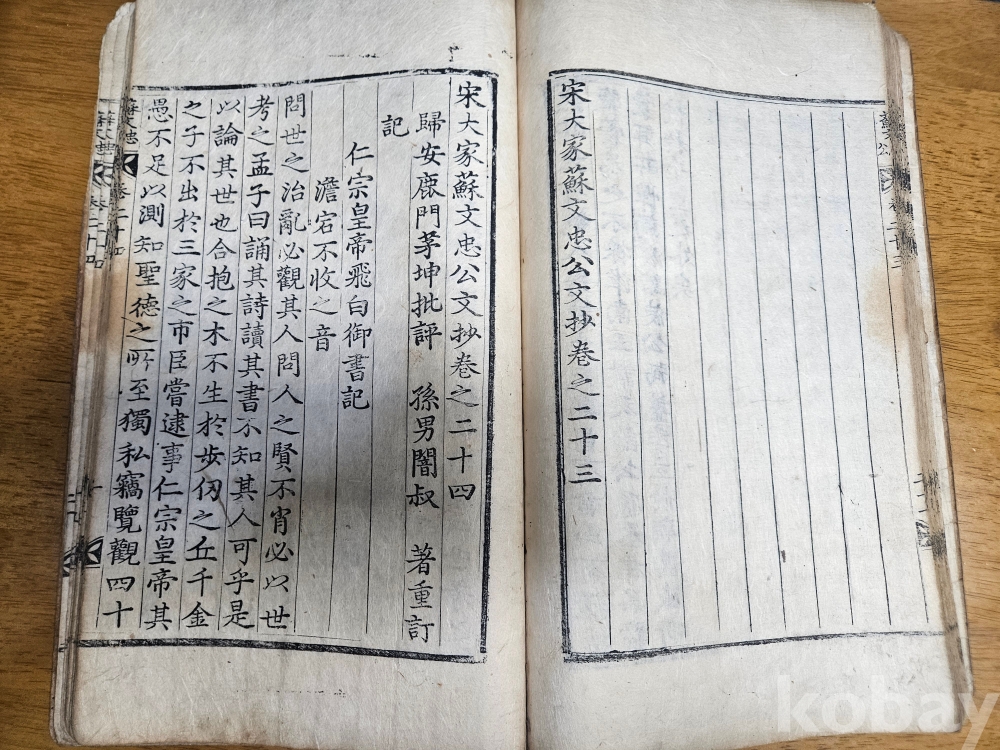 宋大家蘇文忠公文抄卷之二十三
宋大家蘇文忠公文抄卷之二十四
歸安鹿門茅坤批評 孫男闇叔 著重訂
記
仁宗皇帝飛白御書記
澹宕不收之音
問世之治亂必觀其人問人之賢不肖必以世
考之孟子曰誦其詩讀其書不知其人可乎是
以論其世也合抱之木不生於步仞之丘千金
之子不出於三家之市臣嘗逮事仁宗皇帝其
愚不足以測知聖德之所至獨私竊覽觀四十
蘇文忠 卷二十四
kobay